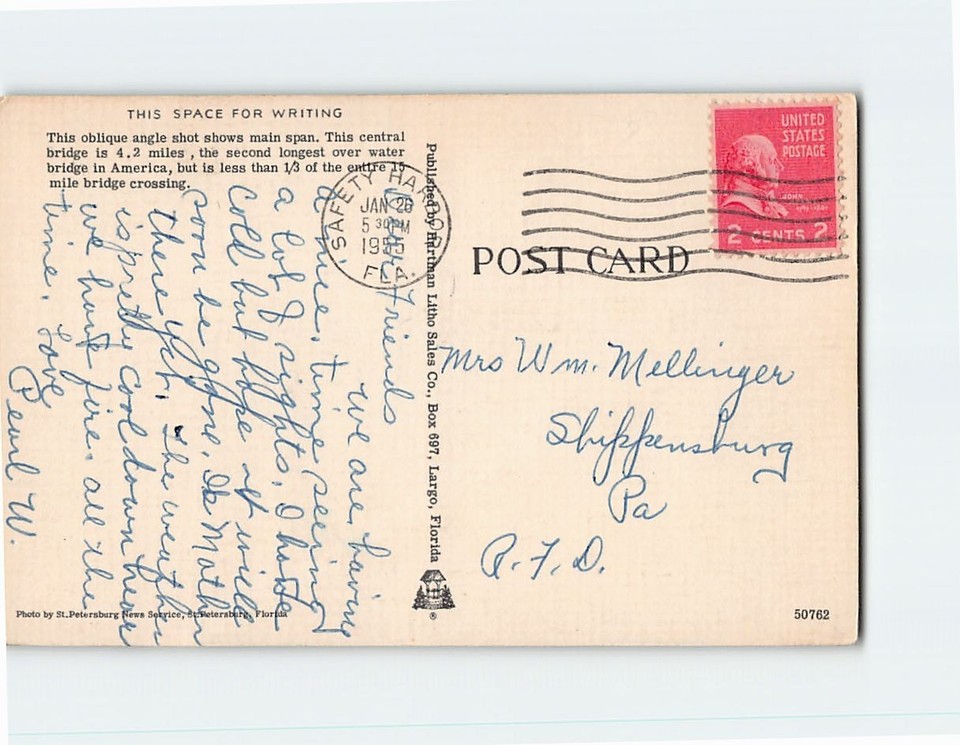 THIS SPACE FOR WRITING
This oblique angle shot shows main span. This central
bridge is 4.2 miles , the second longest over water
bridge in America, but is less than 1/3 of the entire 15
mile bridge crossing.
Friends
we are having
a nice time seeing
a lot of sights. I have
cold but hope it will
soon be gone. Is Mother
there yet. The weather
is pretty cool down hear
we have fire all the
time. Love
Pearl W.
Photo by St.Petersburg News Service, St.Petersburg, Florida
Published by Hartman Litho Sales Co., Box 697, Largo, Florida
®
SAFETY HARBOR
JAN 26
5 30 PM
1955
FLA.
UNITED
STATES
POSTAGE
JOHN
2 CENTS 2
POST CARD
Mrs Wm. Mellinger
Shippensburg
Pa
R.F.D.
50762